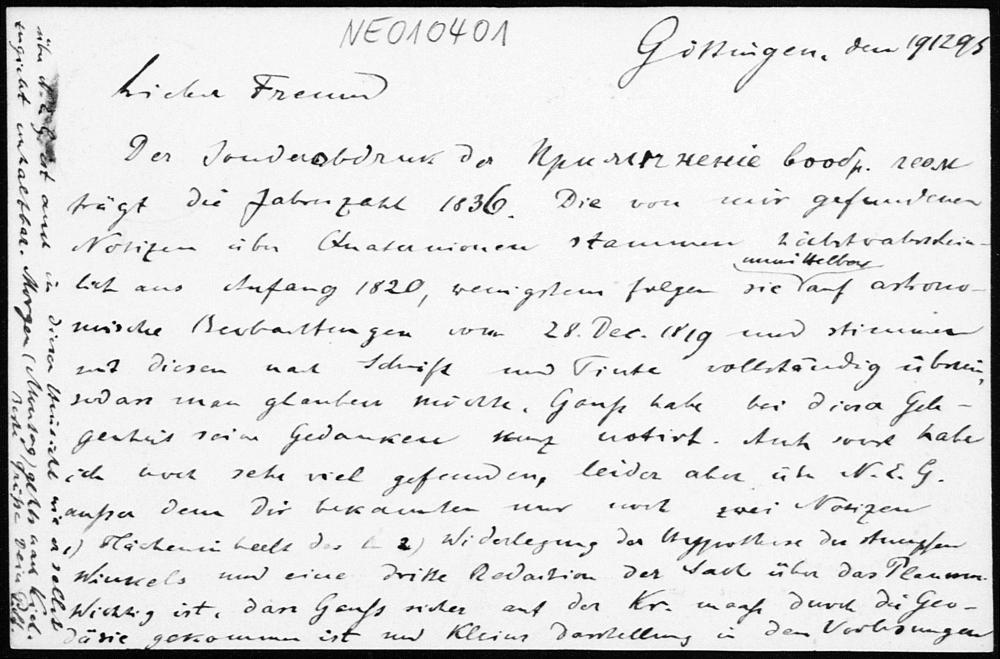 NE010401
Göttingen, den 191295
Lieber Freund
Der Sonderabdruck der Примѣненіе вообр. геом
trägt die Jahreszahl 1836. Die von mir gefundenen
Notizen über Quaternionen stammen höchstwahrschein-
lich aus Anfang 1820, wenigstens folgen sie unmittelbar auf astrono-
mische Beobachtungen vom 28. Dec. 1819 und stimmen
mit diesen nach Schrift und Tinte vollständig überein,
sodass man glauben möchte, Gauß habe bei dieser Gele-
genheit seine Gedanken kurz notirt. Auch sonst habe
ich noch sehr viel gefunden, leider aber über N.E.G.
außer dem Dir bekannten nur noch zwei Notizen
1) Flächeninhalt des 2) Widerlegung der Hypothese des stumpfen
Winkels und eine dritte Redaction der Sach über das Planum.
Wichtig ist, dass Gauß sicher auf der Kr. maaß durch die Geo-
däsie gekommen ist und Kleins Darstellung in den Vorlesungen
über N.E.G. ist auch in dieser Hinsicht wie er selbst
zugiebt unhaltbar. Morgen (Montag) gehts nach Kiel.
Beste Grüße Dein